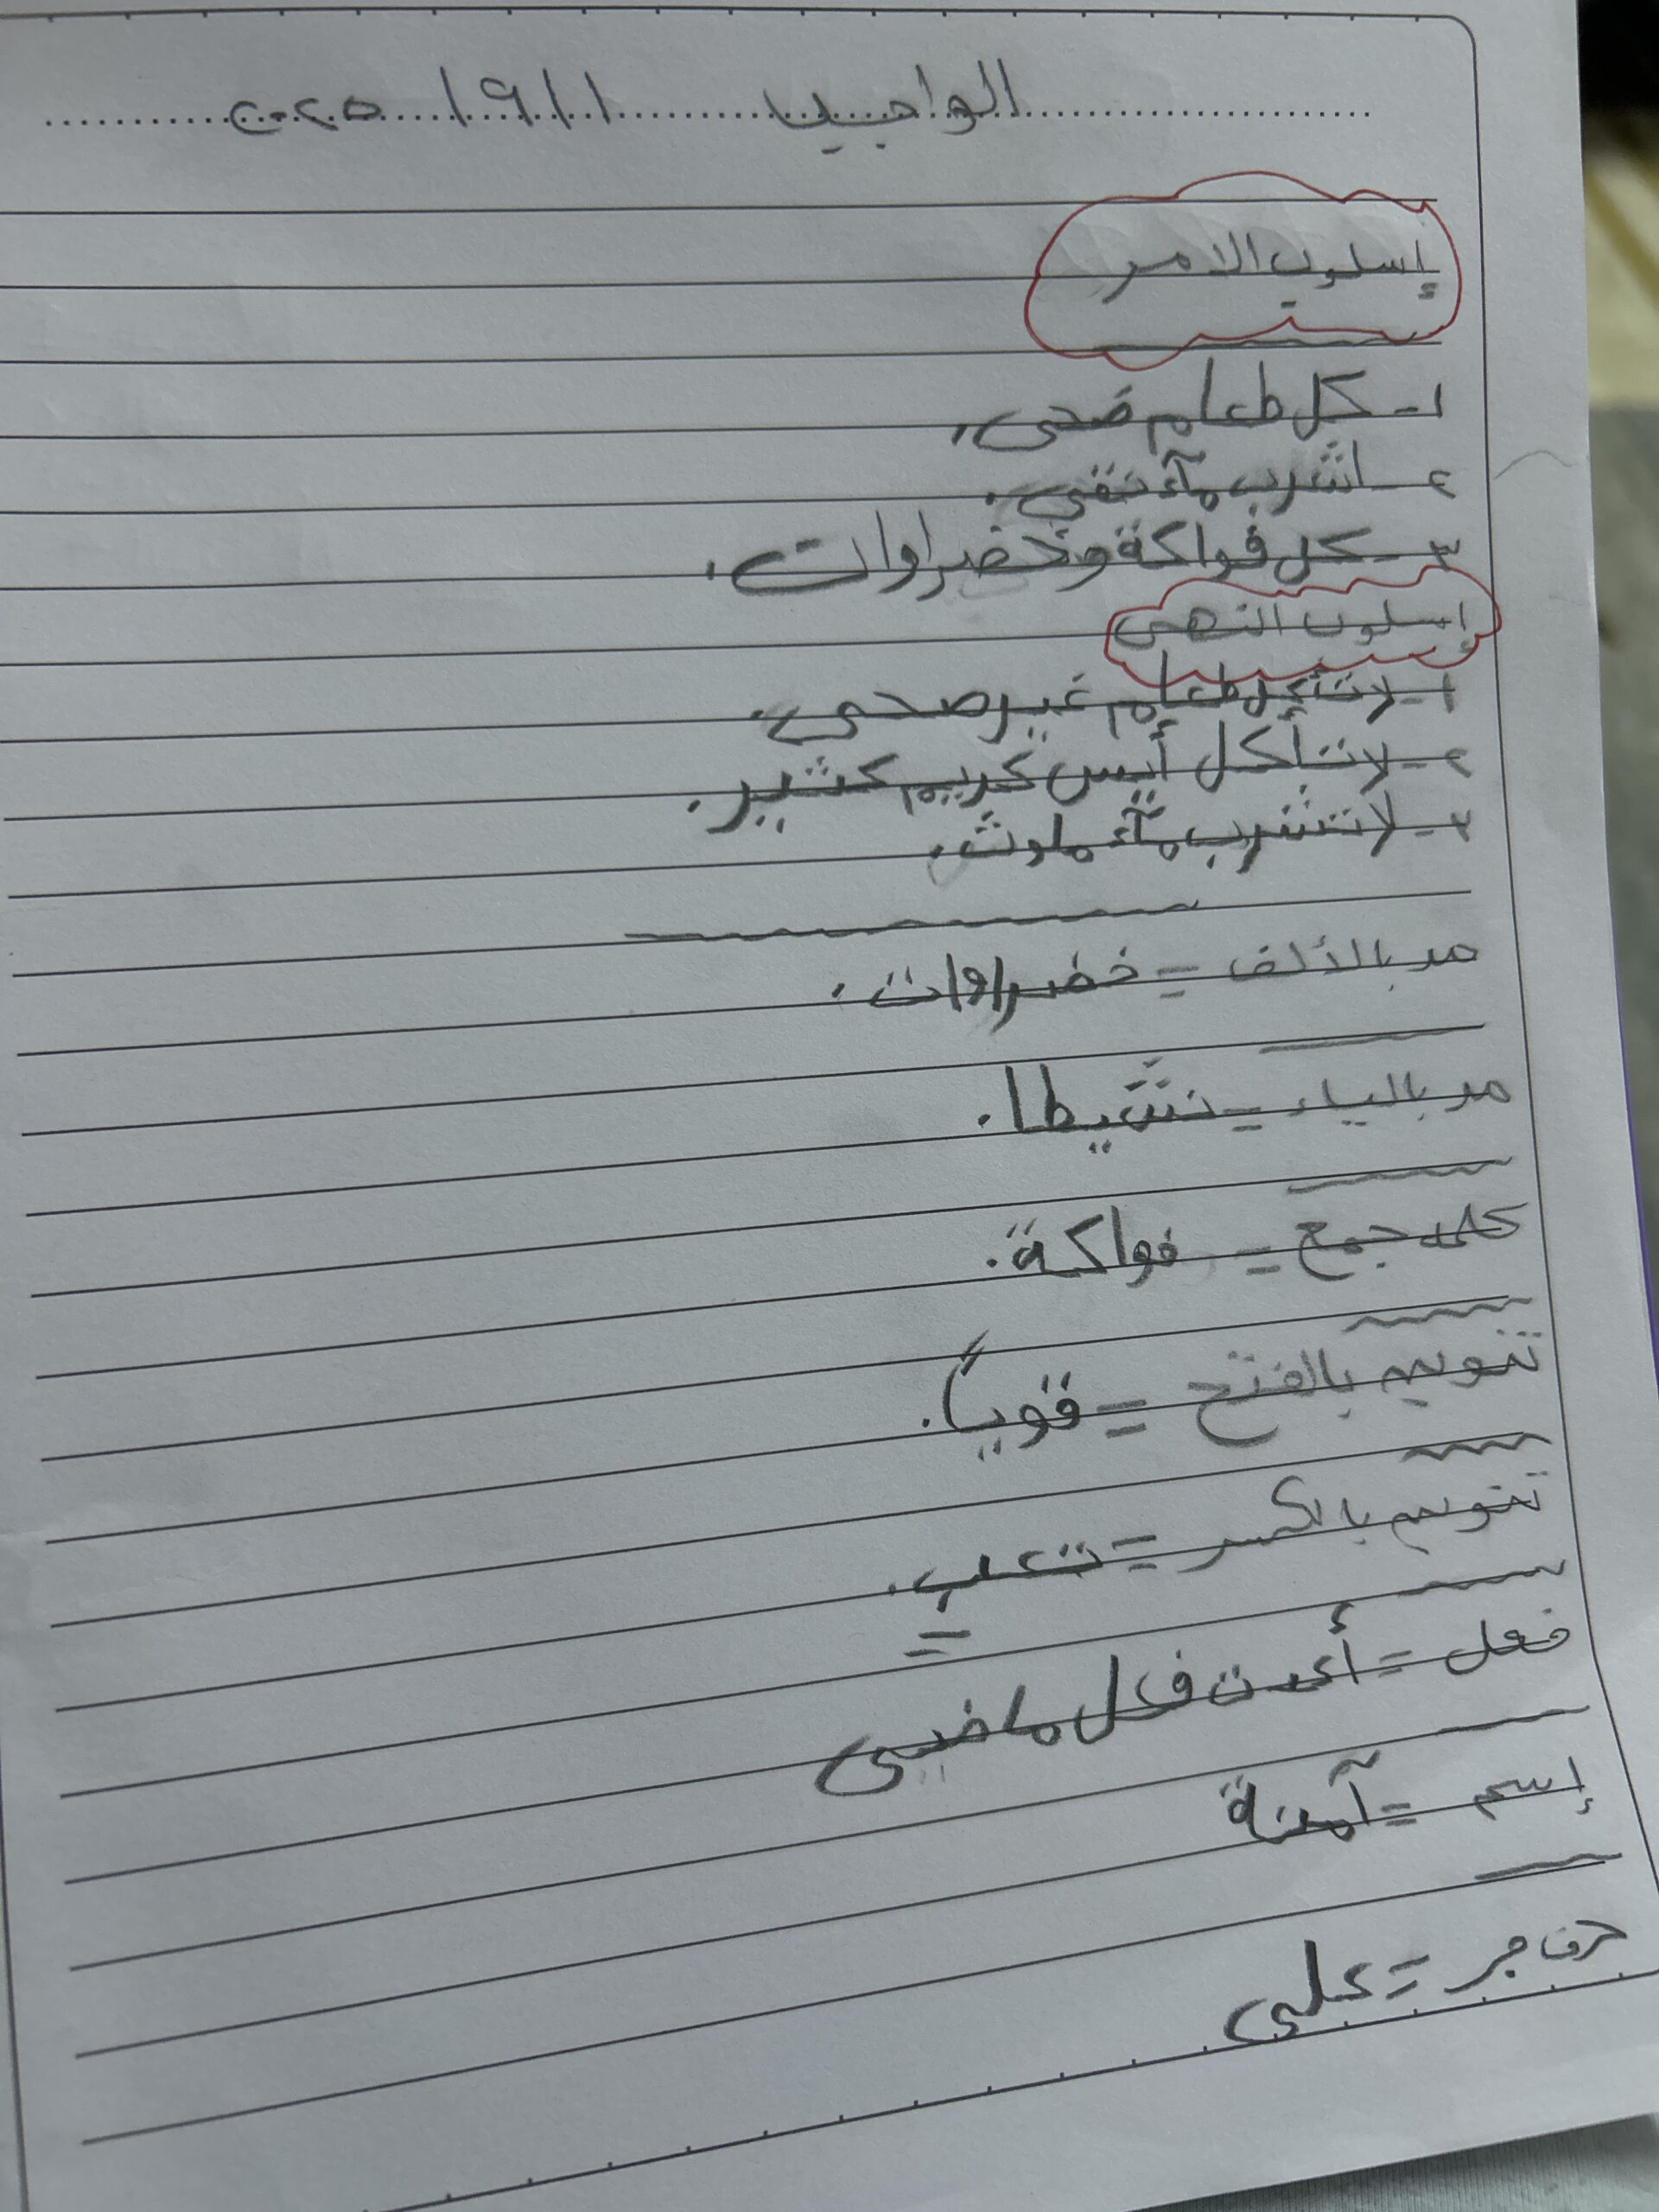 الواجب ١ / ٩ / ٢٠٢٥
إسلوب الامر
١ - كل طعام صحى.
٢ - اشرب مآء نقي.
٣ - كل فواكة وخضراوات.
إسلوب النهى
١ - لا تأكل طعام غير صحي.
٢ - لا تأكل أيس كريم كثير.
٣ - لا تشرب مآء ملوث.
مد بالألف = خضراوات.
مد بالياء = نشيطا.
جمع = فواكة.
تنوين بالفتح = قوياً.
تنوين بالكسر = تعبٍ.
فعل = أعدت فعل ماضي
إسم = آمنة
حرف جر = على